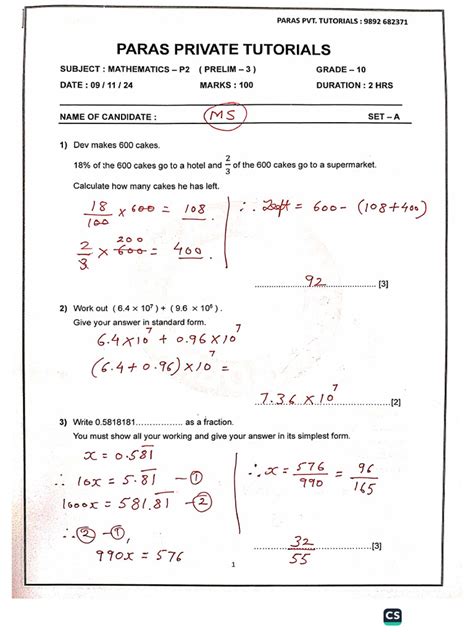 PARAS PVT. TUTORIALS : 9892 682371
PARAS PRIVATE TUTORIALS
SUBJECT : MATHEMATICS – P2 ( PRELIM – 3 ) GRADE – 10
DATE : 09 / 11 / 24 MARKS : 100 DURATION : 2 HRS
NAME OF CANDIDATE : MS SET – A
1) Dev makes 600 cakes.
18% of the 600 cakes go to a hotel and 2/3 of the 600 cakes go to a supermarket.
Calculate how many cakes he has left.
18/100 × 600 = 108
2/3 × 600 200 = 400
∴ left = 600 – (108 + 400)
92 [3]
2) Work out ( 6.4 × 10⁷ ) + ( 9.6 × 10⁶ ) .
Give your answer in standard form.
6.4 × 10⁷ + 0.96 × 10⁷
(6.4 + 0.96) × 10⁷ =
7.36 × 10⁷ [2]
3) Write 0.5818181................ as a fraction.
You must show all your working and give your answer in its simplest form.
x = 0.581
∴ 10x = 5.81 – ①
1000x = 581.81 – ②
∴ ② – ①,
990x = 576
∴ x = 576/990 = 96/165
32/55 [3]
1
CS